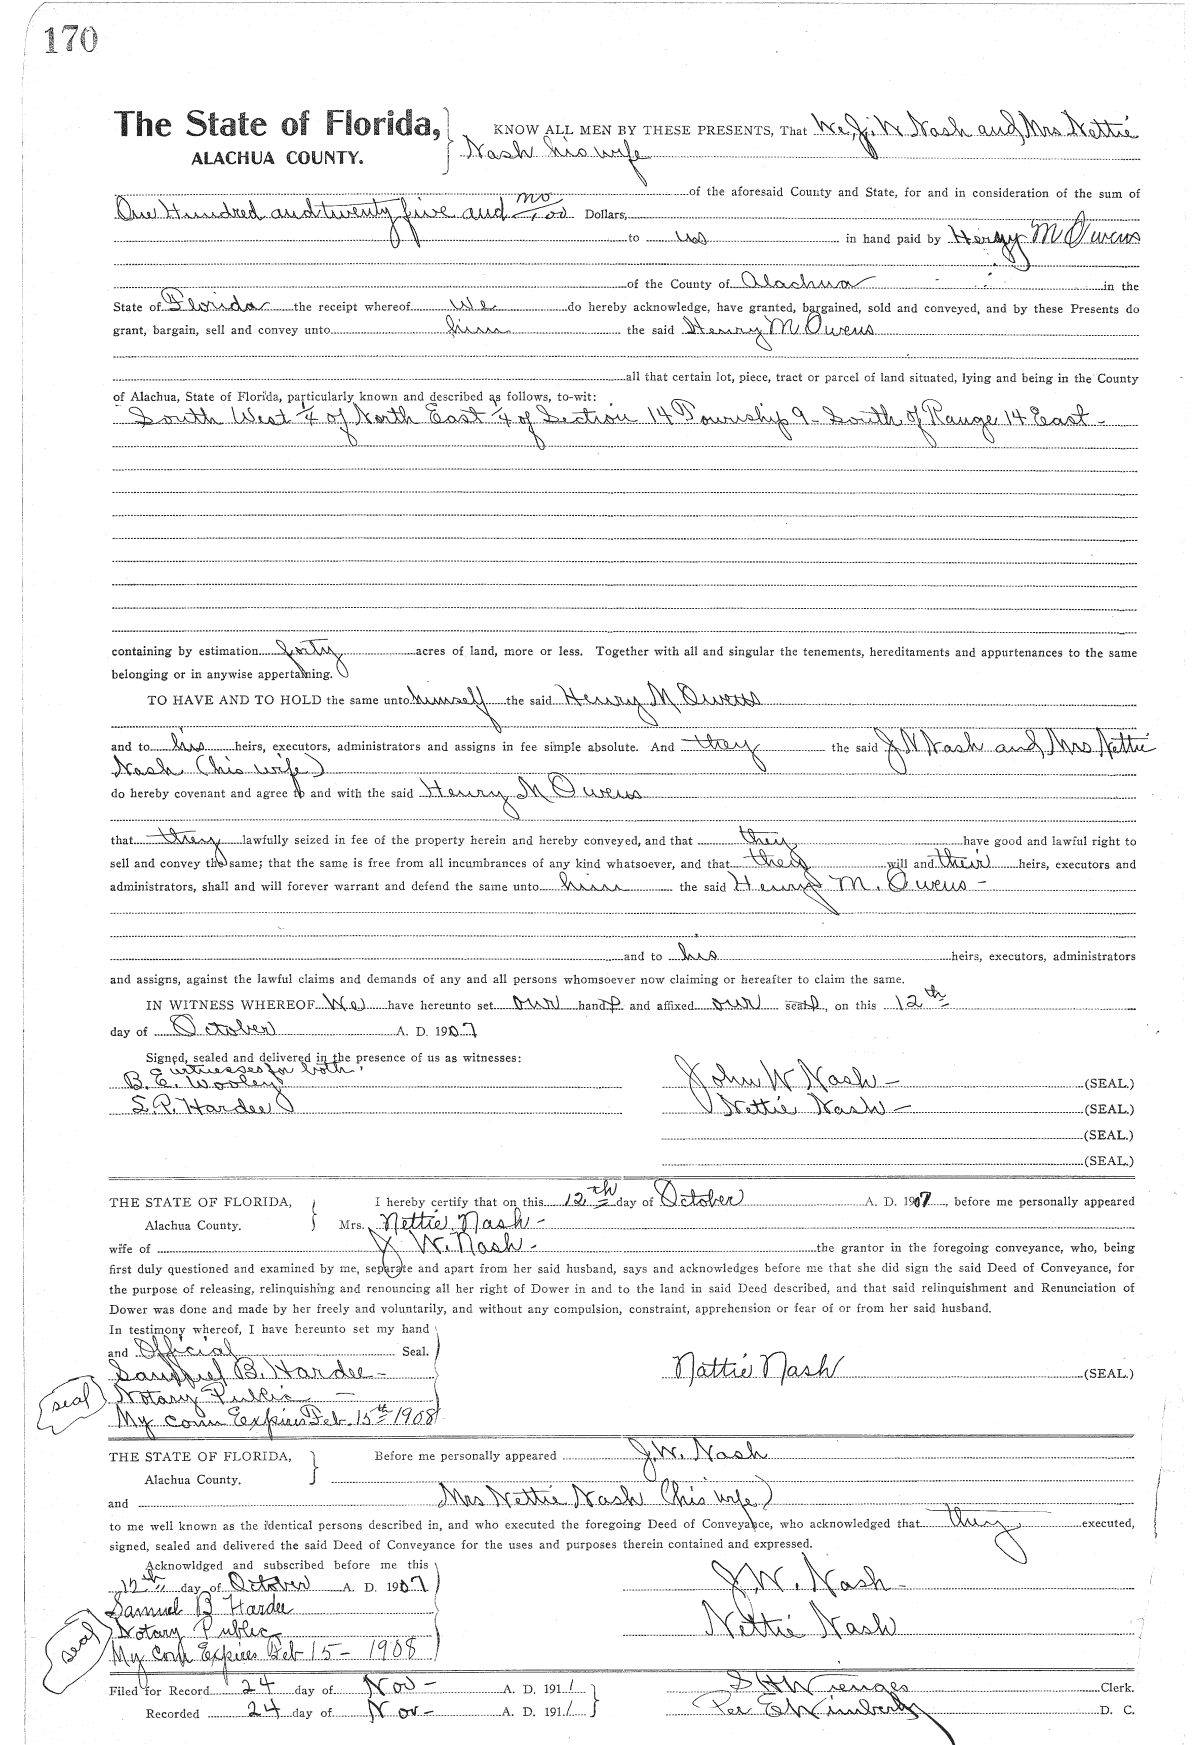 170
The State of Florida, KNOW ALL MEN BY THESE PRESENTS, That We, J. W Nash and Mrs Nettie
ALACHUA COUNTY. Nash his wife
of the aforesaid County and State, for and in consideration of the sum of
One Hundred and twenty five and no/100 Dollars,
to us in hand paid by Henry M Owens
of the County of Alachua in the
State of Florida the receipt whereof we do hereby acknowledge, have granted, bargained, sold and conveyed, and by these Presents do
grant, bargain, sell and convey unto him the said Henry M Owens
all that certain lot, piece, tract or parcel of land situated, lying and being in the County
of Alachua, State of Florida, particularly known and described as follows, to-wit:
South West 1/4 of North East 1/4 of Section 14 Township 9 - South of Range 14 East -
containing by estimation forty acres of land, more or less. Together with all and singular the tenements, hereditaments and appurtenances to the same
belonging or in anywise appertaining.
TO HAVE AND TO HOLD the same unto himself the said Henry M Owens
and to his heirs, executors, administrators and assigns in fee simple absolute. And they the said J W Nash and Mrs Nettie
Nash (his wife)
do hereby covenant and agree to and with the said Henry M Owens
that they lawfully seized in fee of the property herein and hereby conveyed, and that they have good and lawful right to
sell and convey the same; that the same is free from all incumbrances of any kind whatsoever, and that they will and their heirs, executors and
administrators, shall and will forever warrant and defend the same unto him the said Henry M. Owens -
and to his heirs, executors, administrators
and assigns, against the lawful claims and demands of any and all persons whomsoever now claiming or hereafter to claim the same.
IN WITNESS WHEREOF We have hereunto set our hands and affixed our seals, on this 12th
day of October A. D. 1907
Signed, sealed and delivered in the presence of us as witnesses:
witnesses for both
B. E. Wooley John W Nash - (SEAL.)
S. P. Hardee Nettie Nash - (SEAL.)
(SEAL.)
(SEAL.)
THE STATE OF FLORIDA, I hereby certify that on this 12th day of October A. D. 1907, before me personally appeared
Alachua County. Mrs. Nettie Nash -
wife of J W. Nash - the grantor in the foregoing conveyance, who, being
first duly questioned and examined by me, separate and apart from her said husband, says and acknowledges before me that she did sign the said Deed of Conveyance, for
the purpose of releasing, relinquishing and renouncing all her right of Dower in and to the land in said Deed described, and that said relinquishment and Renunciation of
Dower was done and made by her freely and voluntarily, and without any compulsion, constraint, apprehension or fear of or from her said husband.
In testimony whereof, I have hereunto set my hand
and Official Seal.
Samuel B. Hardee - Nattie Nash (SEAL.)
seal Notary Public -
My Com Expires Feb. 15th 1908
THE STATE OF FLORIDA, Before me personally appeared J. W. Nash
Alachua County.
and Mrs Nettie Nash (his wife)
to me well known as the identical persons described in, and who executed the foregoing Deed of Conveyance, who acknowledged that they executed,
signed, sealed and delivered the said Deed of Conveyance for the uses and purposes therein contained and expressed.
Acknowldged and subscribed before me this
12th day of October A. D. 1907 J. W. Nash -
Samuel B Hardee
seal Notary Public Nettie Nash
My Com Expires Feb 15 - 1908
Filed for Record 24 day of Nov - A. D. 1911 S H Wienges Clerk.
Recorded 24 day of Nov - A. D. 1911 Per E Wimberly D. C.